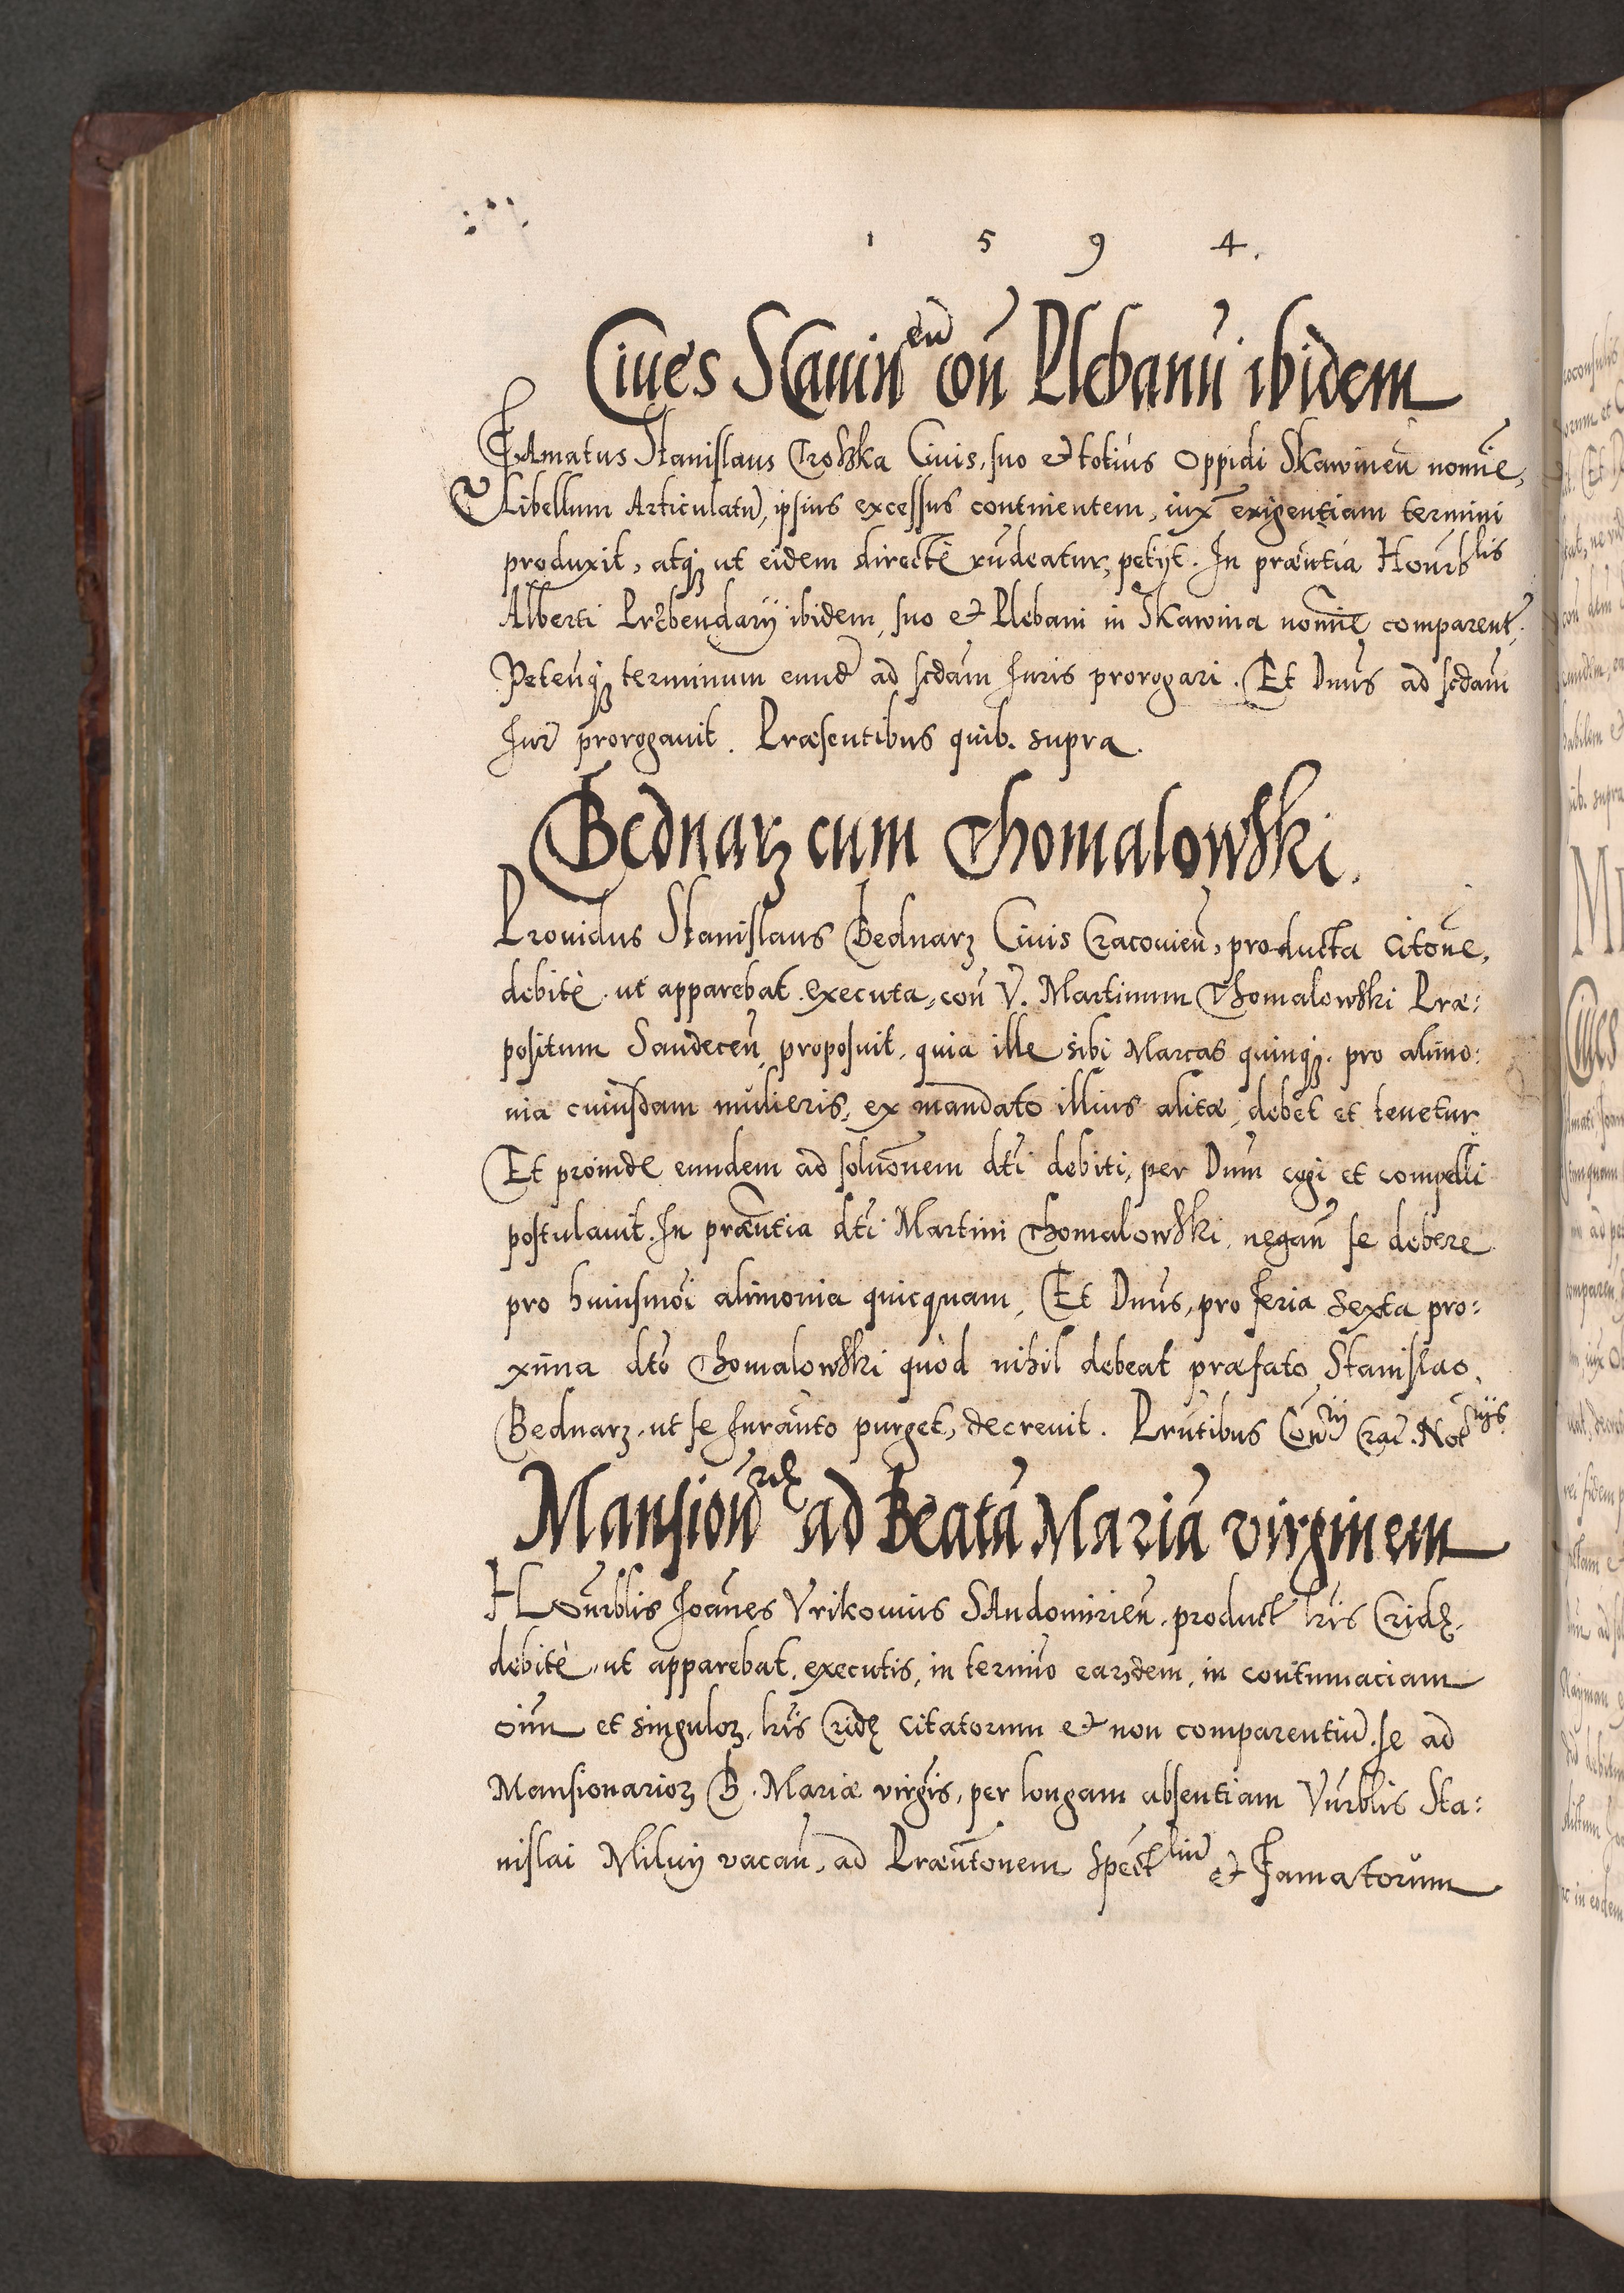 1 5 9 4.
Ciues Skauin en con̄ Plebanū ibidem
FAmatus Stanislaus Troszka Ciuis, suo et totius Oppidi Skawineñ nomīe,
Libellum Articulatū, ipsius excessus continentem, iux̄ exigentiam termini
produxit, atqꝫ ut eidem directè rñdeatur, petijt. In præñtia Honrb lis
Alberti Præbendarij ibidem, suo et Plebani in Skawina nomīe comparent.
Peteñqꝫ terminum eund ad scdam Iuris prorogari. Et Dnus ad scdam
Iur prorogauit. Præsentibus quib. supra.
Bednarz cum Thomalowski.
Prouidus Stanislaus Bednarz Ciuis Cracouieñ, producta citone,
debitè ut apparebat executa, con̄ V. Martinum Thomalowski Præ:
positum Sandeceñ, proposuit, quia ille sibi Marcas quinqꝫ. pro alimo:
nia cuiusdam mulieris, ex mandato illius alitæ, debet et tenetur
Et proinde eundem ad soluōnem dti debiti, per Dnm cogi et compelli
postulauit. In præñtia dti Martini Thomalowski, negañ se debere
pro huiusmōi alimonia quicquam, Et Dnus, pro feria sexta pro:
xima dto Thomalowski quòd nihil debeat præfato Stanislao
Bednarz, ut se Iurañto purget, decreuit. Prñtibus Con rij Crac. Not rijs
Mansion rꝫ ad Beatā Mariā virginem
HOnrblis Ioānes Vrikouius SAndomirieñ, product lris Cridꝫ,
debitè, ut apparebat, executis, in termino earꝫdem, in contumaciam
oīm et singuloꝝ, lris Cridꝫ citatorum et non comparentiū, se ad
Mansionarioꝝ B. Mariæ virgis, per longam absentiam Vnrblis Sta:
nislai Miluij vacañ, ad Præñtonem Spect liū et Famatorum